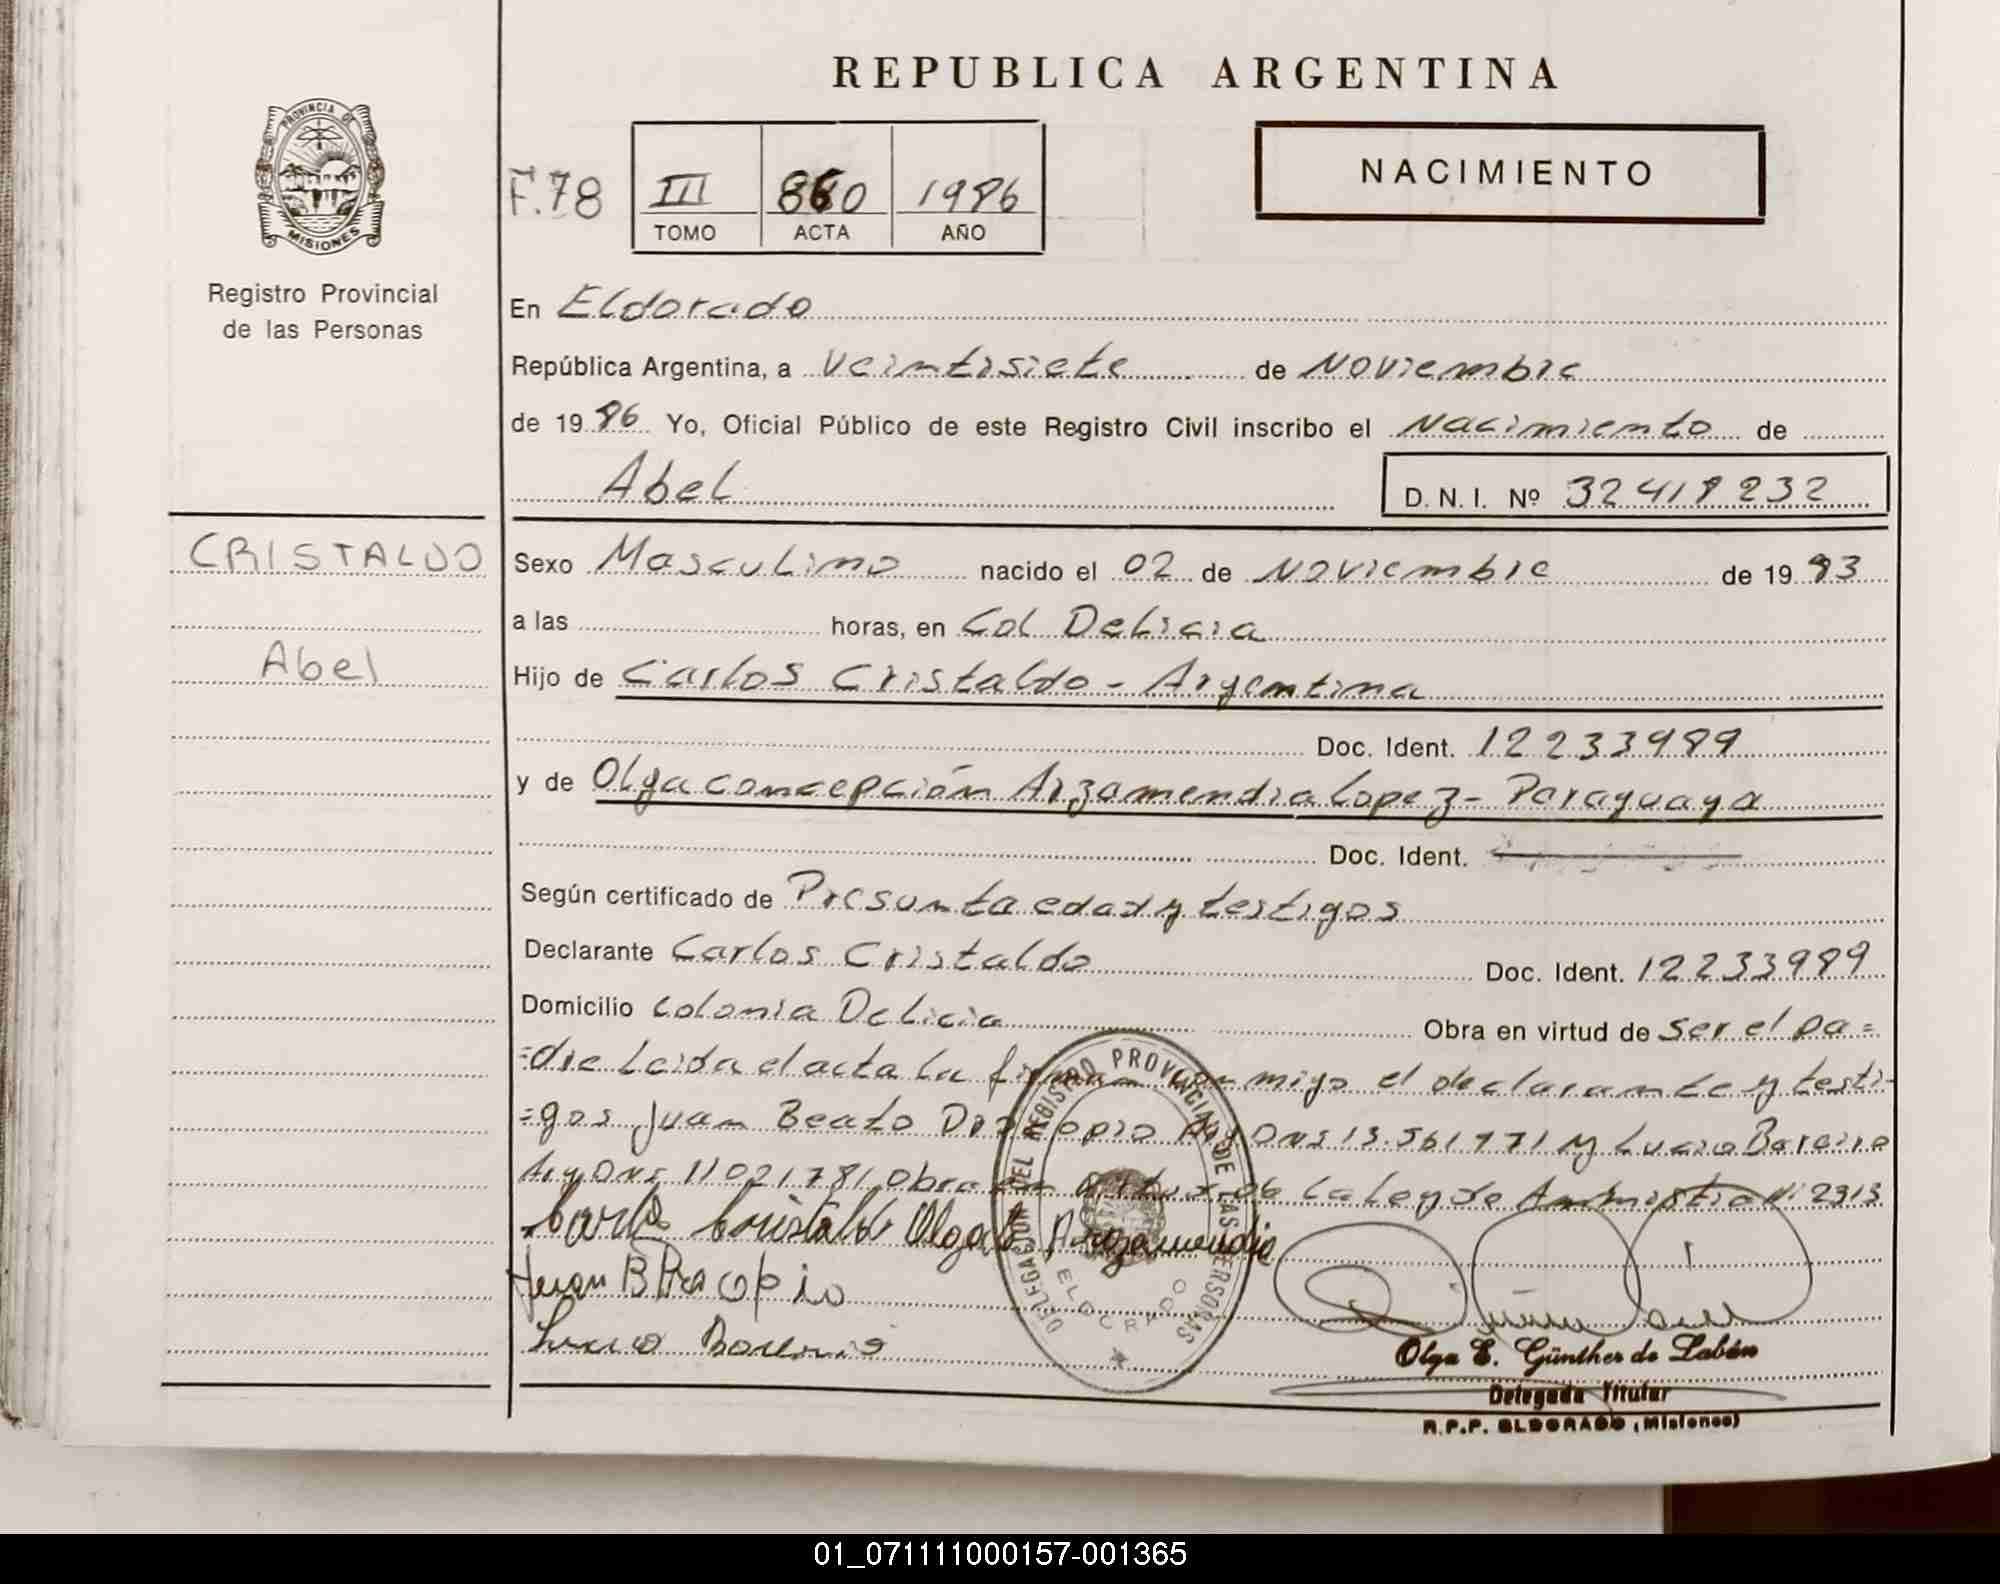 REPUBLICA ARGENTINA
PROVINCIA DE
MISIONES
Registro Provincial
de las Personas
F.78
III
860
1986
TOMO
ACTA
AÑO
NACIMIENTO
En Eldorado
República Argentina, a veintisiete de Noviembre
de 1986 Yo, Oficial Público de este Registro Civil inscribo el Nacimiento de
Abel
D.N.I. Nº 32418232
CRISTALDO
Abel
Sexo Masculino nacido el 02 de Noviembre de 1983
a las horas, en Col Delicia
Hijo de Carlos Cristaldo - Argentina
Doc. Ident. 12233989
y de Olga concepción Arzamendia Lopez - Paraguaya
Doc. Ident.
Según certificado de Presunta edad y testigos
Declarante Carlos Cristaldo Doc. Ident. 12233989
Domicilio Colonia Delicia Obra en virtud de ser el pa=
=dre Leida el acta la firman conmigo el declarante y testi-
=gos Juan Beato Procopio Arg DNI 13.561771 y Lucio Bareiro
Arg DNI 11021781 Obra en virtud de la Ley de Amnistia Nº 2313
Carlos Cristaldo Olga C Arzamendia
Juan B Procopio
Lucio Bareiro
DELEGACION DEL REGISTRO PROVINCIAL DE LAS PERSONAS
ELDORADO
Olga E. Günther de Labán
Delegada Titular
R.P.P. ELDORADO (Misiones)
01_071111000157-001365